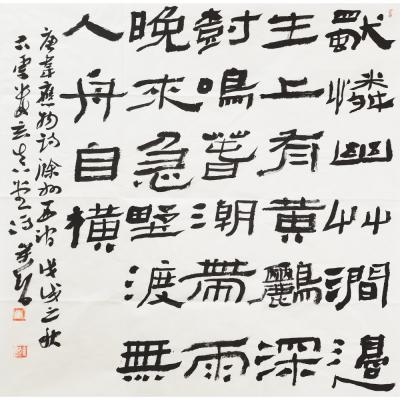 獨憐幽艸澗邊
生上有黄鸝深
樹鳴春潮帶雨
晚來急野渡無
人舟自横
唐韋應物詩滁州西澗戊戌之秋